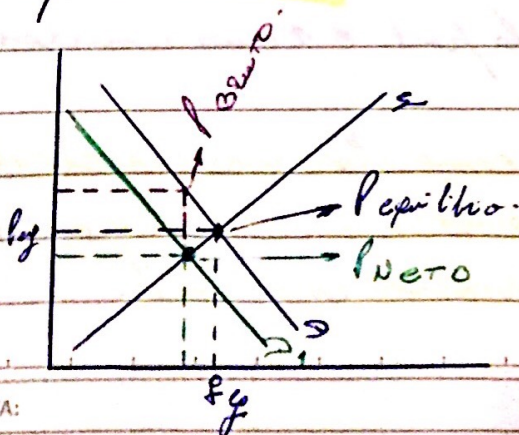 P BRUTO.
S
P equilibrio.
Pey
P NETO
D
D1
qey
A: